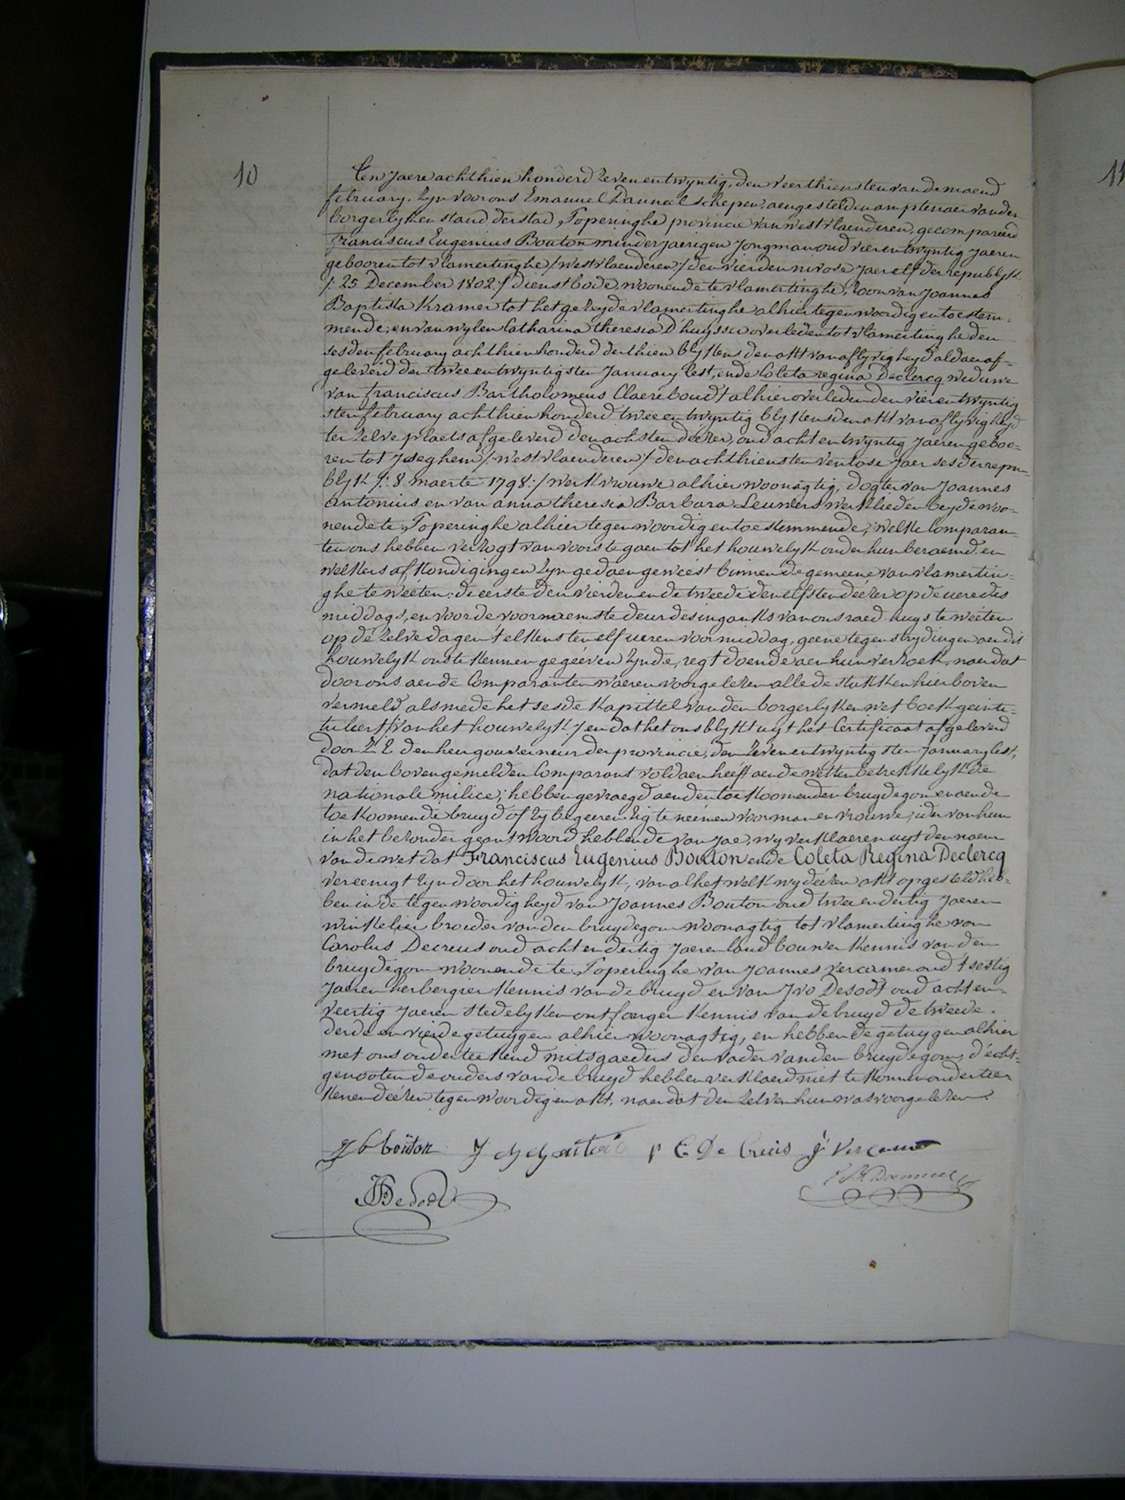 10
15
Ten Jaere achthien honderd zeven en twyntig, den veerthiensten van de maend
february, Zyn voor ons Emanuel Danneel schepen, aengesteld en amptenaer van den
borgerlyken stand der stad Poperinghe provincie van westvlaenderen, gecompareerd
Franciscus Eugenius Bouton minderjaerigen Jongman oud vier en twyntig Jaeren
gebooren tot vlamertinghe /westvlaenderen/ den vierden nivose Jaer elf der republyk
/: 25 December 1802 :/ dienstbode, woonende te vlamertinghe, Zoon van Joannes
Baptista Kramer tot het gezeyde vlamertinghe alhier tegenwoordig en toestem-
mende, en van wylen Catharina theresia D'huysser overleden tot vlamertinghe den
sesden february achthien honderd derthien blykens den akt van aflyvigheyd aldaer af-
geleverd den twee en twyntigsten January lest, ende Coleta regina Declercq weduwe
van franciscus Bartholomeus Claerebout alhier overleden den vier en twyntig
sten february achthien honderd twee en twyntig blykens den akt van aflyvigheyd
ter zelve plaets afgeleverd den achsten deezer, oud acht en twyntig Jaeren geboo-
ren tot Iseghem /westvlaenderen/ den achthiensten ventose Jaer ses der repu-
blyk /: 8 maerte 1798 :/ werkvrouwe alhier woonagtig, dogter van Joannes
Antonius en van anna theresia Barbara Leuniers werklieden beyde woo-
nende te Poperinghe alhier tegenwoordig en toestemmende, welke Comparan-
ten ons hebben verzogt van voorts te gaen tot het houwelyk onder hun beraemd, en
welkers afkondigingen Zyn gedaen geweest binnen de gemeene van vlamertin-
ghe te weeten: de eerste den vierden en de tweede den elfsten deezer op de uere des
middags, en voor de voornaemste deur des ingankx van ons raedhuys te weeten
op de zelve dagen telkens ten elf ueren voormiddag, geene tegenstrydingen aen dit
houwelyk ons te kennen gegeéven Zynde, regt doende aen hun verzoek, naer dat
door ons aen de Comparanten waeren voorgelezen alle de stukken hier boven
vermeld als mede het sesde Kapittel van den borgerlyken wetboek geinti-
tuleert /van het houwelyk/ en dat het ons blykt uyt het Certificaet afgeleverd
door Z. E. den heer gouverneur der provincie, den zeven en twyntigsten January lest,
dat den bovengemelden Comparant voldaen heeft aen de wetten betrekkelyk de
nationale milice; hebben gevraegd aen den toekoomenden bruydegom en aen de
toekoomende bruyd of zy begeeren zig te neemen voor man en vrouwe; ider van hun
in het bezonder geantwoord hebbende van Jae, wy verklaeren uyt den naem
van de wet dat Franciscus Eugenius Bouton ende Coleta Regina Declercq
vereenigt Zyn door het houwelyk, van al het welk wy deezen akt opgesteld heb-
ben in de tegenwoordigheyd van Joannes Bouton oud twee en dertig Jaeren
winkelier broeder van den bruydegom woonagtig tot vlamertinghe van
Carolus Decreus oud acht en dertig Jaeren landbouwer Kennis van den
bruydegom woonende te Poperinghe van Joannes vercamer oud tsestig
Jaeren herbergier Kennis van de bruyd en van Ivo Desodt oud acht en
veertig Jaeren stedelyken ontfanger Kennis van de bruyd de tweede
derde en vierde getuygen alhier woonagtig, en hebben de getuygen alhier
met ons onderteekend mitsgaeders den vader van den bruydegom, d'echt-
genooten de ouders van de bruyd hebben verklaerd niet te konnen onderteek-
kenen deezen tegenwoordigen akt, naer dat den zelven hun was voorgelezen.
J b boúton P C De Creús J Vercamer
Desodt Danneel